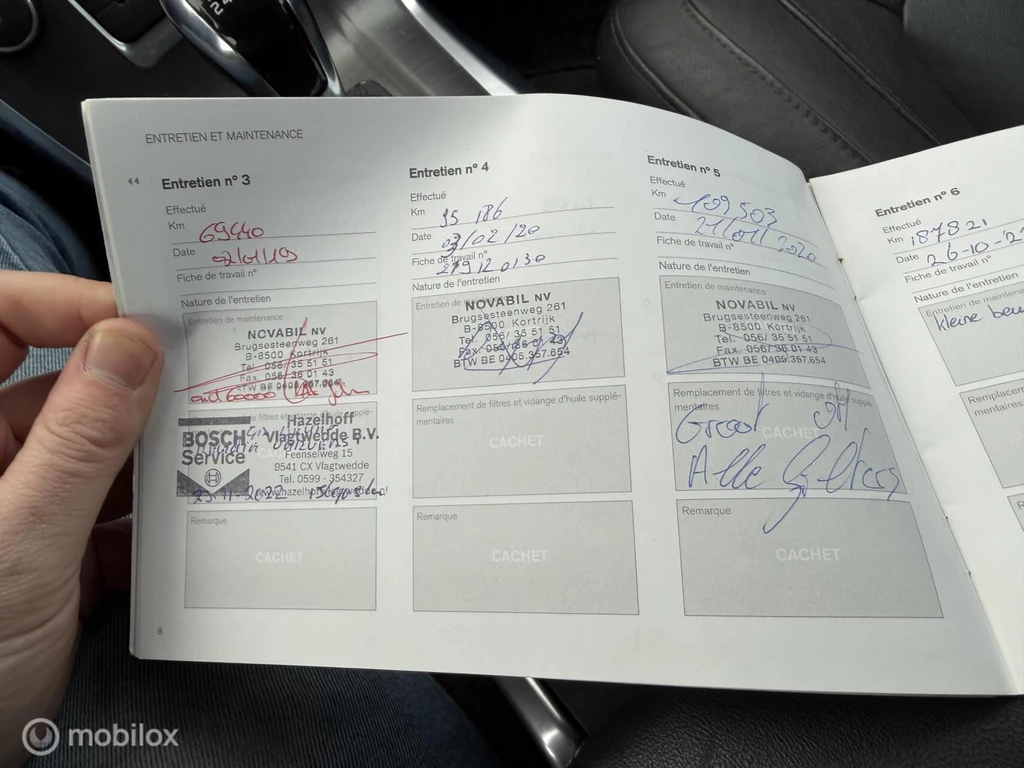 ENTRETIEN ET MAINTENANCE
Entretien nº 3
Effectué
Km 69440
Date 02/01/19
Fiche de travail nº
Nature de l'entretien
Entretien de maintenance
NOVABIL NV
Brugsesteenweg 261
B-8500 Kortrijk
Tel. 056/ 35 51 51
Fax. 056/ 36 01 43
BTW BE 0405.357.654
60000
BOSCH
Service
Hazelhoff
Vlagtwedde B.V.
Feenselweg 15
9541 CX Vlagtwedde
Tel. 0599 - 354327
23-11-2022
Remarque
CACHET
8
Entretien nº 4
Effectué
Km 95 186
Date 03/02/20
Fiche de travail nº
219120130
Nature de l'entretien
Entretien de maintenance
NOVABIL NV
Brugsesteenweg 261
B-8500 Kortrijk
Tel. 056/ 35 51 51
Fax. 056/ 36 01 43
BTW BE 0405.357.654
Remplacement de filtres et vidange d'huile supplé-
mentaires
CACHET
Remarque
CACHET
Entretien nº 5
Effectué
Km 109,503
Date 21/011/2020
Fiche de travail nº
Nature de l'entretien
Entretien de maintenance
NOVABIL NV
Brugsesteenweg 261
B-8500 Kortrijk
Tel. 056/ 35 51 51
Fax. 056/ 36 01 43
BTW BE 0405.357.654
Remplacement de filtres et vidange d'huile supplé-
mentaires
CACHET
Groot
Alle
Remarque
CACHET
Entretien nº 6
Effectué
Km 187821
Date 26-10-2
Fiche de travail nº
Nature de l'entretien
Entretien de maintenance
kleine beu
Remplacement
mentaires
Remarque
mobilox